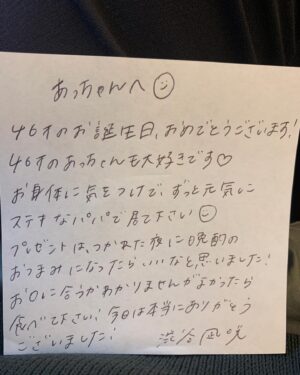 あっちゃんへ☺
46才のお誕生日、おめでとうございます!
46才のあっちゃんも大好きです♡
お身体に気をつけて、ずっと元気に
ステキなパパで居て下さい☺
プレゼントは、つかれた夜に晩酌の
おつまみになったらいいなと思いました!
お口に合うかわかりませんがよかったら
食べて下さい!今日は本当にありがとう
ございました! 渋谷凪咲